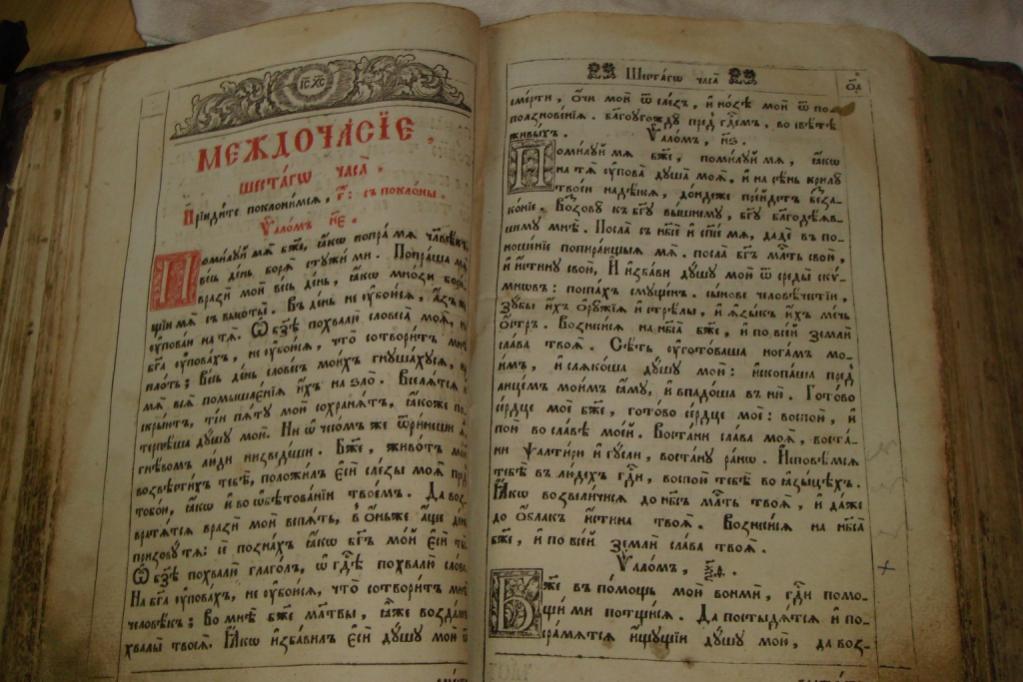 ІС ХС
МЕЖДОЧА́СІЕ,
шеста́гѡ часа̀.
Прїиди́те поклони́мся, г҃: съ покло́ны.
Ѱало́мъ н҃е.
Поми́лꙋй мѧ̀ бж҃е, ꙗ҆́кѡ попра́ мѧ человѣ́къ,
ве́сь де́нь борѧ̀ стꙋжи́ ми. Попра́ша мѧ̀
вразѝ моѝ ве́сь де́нь, ꙗ҆́кѡ мно́зи борю́-
щїи мѧ̀ съ высоты̀. Въ де́нь не ᲂу҆бою́сѧ, а҆́зъ же
ᲂу҆пова́ю на тѧ̀. Ѡ҆ бз҃ѣ похвалю̀ словеса̀ моѧ̀, на
бг҃а ᲂу҆пова́хъ, не ᲂу҆бою́сѧ, что̀ сотвори́тъ мнѣ̀
пло́ть; Ве́сь де́нь слове́съ мои́хъ гнꙋша́хꙋсѧ, на
мѧ̀ всѧ̀ помышле́нїѧ и҆́хъ на зло̀. Вселѧ́тсѧ и҆
скры́ютъ, ті́и пѧ́тꙋ мою̀ сохранѧ́тъ, ꙗ҆́коже по-
терпѣ́ша дꙋ́шꙋ мою̀. Ни ѡ҆ чесо́мъ же ѿри́неши ѧ҆̀,
гнѣ́вомъ лю́ди низведе́ши. Бж҃е, живо́тъ мо́й
возвѣсти́хъ тебѣ̀, положи́лъ є҆сѝ сле́зы моѧ̀ пред̾
тобо́ю, ꙗ҆́кѡ и҆ во ѡ҆бѣтова́нїи твое́мъ. Да воз-
вратѧ́тсѧ вразѝ моѝ вспѧ́ть, в̾ о҆́ньже а҆́ще де́нь
призовꙋ́ тѧ: сѐ позна́хъ ꙗ҆́кѡ бг҃ъ мо́й є҆сѝ ты̀.
Ѡ҆ бз҃ѣ похвалю̀ глаго́лъ, ѡ҆ гдⷭ҇ѣ похвалю̀ сло́во.
На бг҃а ᲂу҆пова́хъ, не ᲂу҆бою́сѧ, что̀ сотвори́тъ мнѣ̀
человѣ́къ; Во мнѣ̀ бж҃е мл҃твы, ꙗ҆̀же возда́мъ
хвалы̀ твоеѧ̀. Ꙗ҆́кѡ и҆зба́вилъ є҆сѝ дꙋ́шꙋ мою̀ ѿ
Шеста́гѡ часа̀
о҃д
сме́рти, ѻ҆́чи моѝ ѿ сле́зъ, и҆ но́зѣ моѝ ѿ по-
ползнове́нїѧ. благоꙋгождꙋ̀ пред̾ гдⷭ҇емъ, во свѣ́тѣ
живы́хъ. Ѱало́мъ, н҃ѕ.
Поми́лꙋй мѧ̀ бж҃е, поми́лꙋй мѧ̀, ꙗ҆́кѡ
на тѧ̀ ᲂу҆пова̀ дꙋша̀ моѧ̀. и҆ на сѣ́нь крилꙋ̀
твоє́ю надѣ́юсѧ, до́ндеже пре́йдетъ безза-
ко́нїе. Воззовꙋ̀ къ бг҃ꙋ вы́шнемꙋ, бг҃ꙋ благодѣ́ѧв-
шемꙋ мнѣ̀. Посла̀ съ нб҃сѐ и҆ сп҃се́ мѧ, дадѐ въ по-
ноше́нїе попира́ющыѧ мѧ̀. посла̀ бг҃ъ млⷭ҇ть свою̀,
и҆ и҆́стинꙋ свою̀, И҆ и҆зба́ви дꙋ́шꙋ мою̀ ѿ среды̀ ску́-
мнѡвъ: поспа́хъ смꙋще́нъ. сы́нове человѣ́честїи,
зꙋ́бы и҆́хъ ѻ҆рꙋ́жїѧ и҆ стрѣ́лы, и҆ ꙗ҆зы́къ и҆́хъ ме́чь
ѻ҆́стръ. Вознеси́сѧ на нб҃са̀ бж҃е, и҆ по все́й землѝ
сла́ва твоѧ̀. Сѣ́ть ᲂу҆гото́ваша нога́мъ мо-
и҆́мъ, и҆ слѧко́ша дꙋ́шꙋ мою̀: и҆скопа́ша пред̾
лице́мъ мои́мъ ꙗ҆́мꙋ, и҆ впадо́ша въ ню̀. Гото́во
се́рдце моѐ бж҃е, гото́во се́рдце моѐ: воспою̀, и҆
пою̀ во сла́вѣ мое́й. Воста́ни сла́ва моѧ̀, воста́-
ни ѱалти́рю и҆ гꙋ́сли, воста́нꙋ ра́нѡ. И҆сповѣ́мсѧ
тебѣ̀ въ лю́дехъ гдⷭ҇и, воспою̀ тебѣ̀ во ꙗ҆зы́цѣхъ.
Ꙗ҆́кѡ возвели́чисѧ до нб҃съ млⷭ҇ть твоѧ̀, и҆ да́же
до ѻ҆́блакъ и҆́стина твоѧ̀. Вознеси́сѧ на нб҃са̀
бж҃е, и҆ по все́й землѝ сла́ва твоѧ̀.
Ѱало́мъ, ѯ҃ѳ.
Бж҃е въ по́мощь мою̀ вонмѝ, гдⷭ҇и помо-
щи́ ми потщи́сѧ. Да постыдѧ́тсѧ и҆ по-
сра́мѧтсѧ и҆́щꙋщїи дꙋ́шꙋ мою̀, да воз-